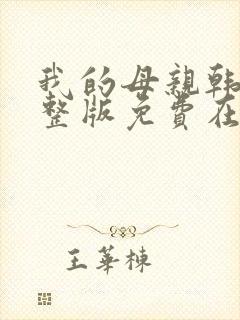 我的母親韩
整版免費在
王華棟